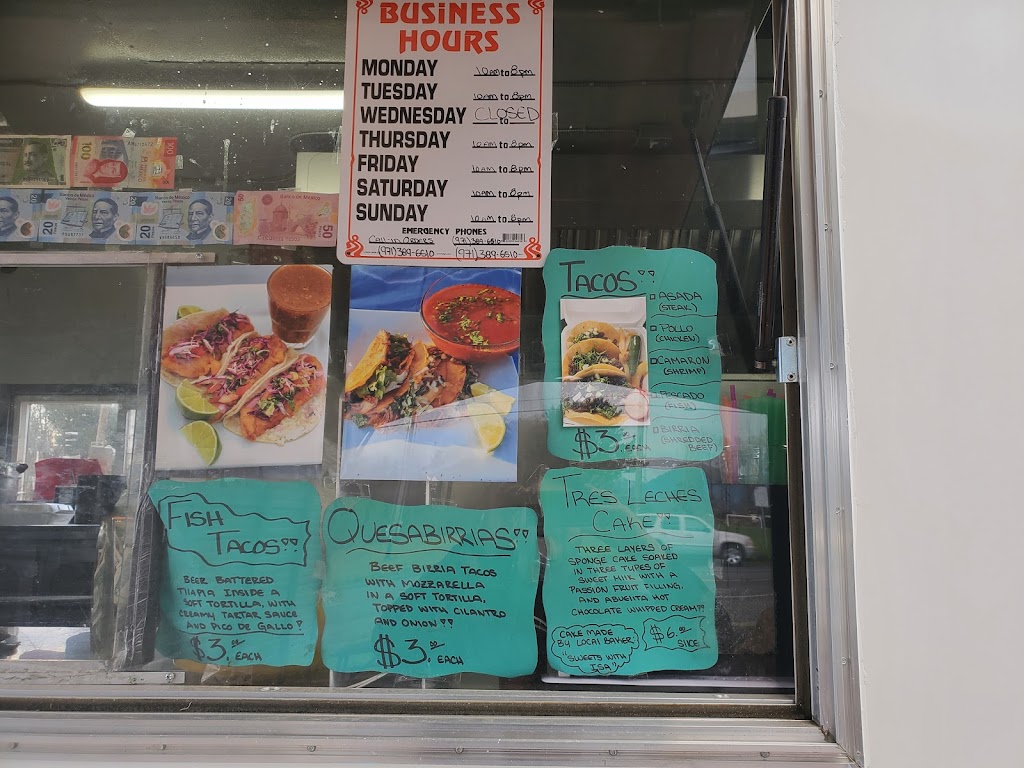 BUSINESS
HOURS
MONDAY 10am to 8pm
TUESDAY 10am to 8pm
WEDNESDAY CLOSED to
THURSDAY 10am to 8pm
FRIDAY 10am to 8pm
SATURDAY 10am to 8pm
SUNDAY 10am to 8pm
EMERGENCY PHONES
Call-in Orders (971)389-6510
(971)389-6510 (971)389-6510
100
100
20
20
20
50
50
TACOS
ASADA
(STEAK)
POLLO
(CHICKEN)
CAMARON
(SHRIMP)
PESCADO
(FISH)
BIRRIA
(SHREDDED
BEEF)
$3. EACH
FISH
TACOS!!
BEER BATTERED
TILAPIA INSIDE A
SOFT TORTILLA, WITH
CREAMY TARTAR SAUCE
AND PICO DE GALLO!
$3.00 EACH
QUESABIRRIAS!!
BEEF BIRRIA TACOS
WITH MOZZARELLA
IN A SOFT TORTILLA,
TOPPED WITH CILANTRO
AND ONION!!
$3.00 EACH
TRES LECHES
CAKE!!
THREE LAYERS OF
SPONGE CAKE SOAKED
IN THREE TYPES OF
SWEET MILK WITH A
PASSION FRUIT FILLING,
AND ABUELITA HOT
CHOCOLATE WHIPPED CREAM!!
CAKE MADE
BY LOCAL BAKER
"SWEETS WITH
ISA"
$6.00
SLICE